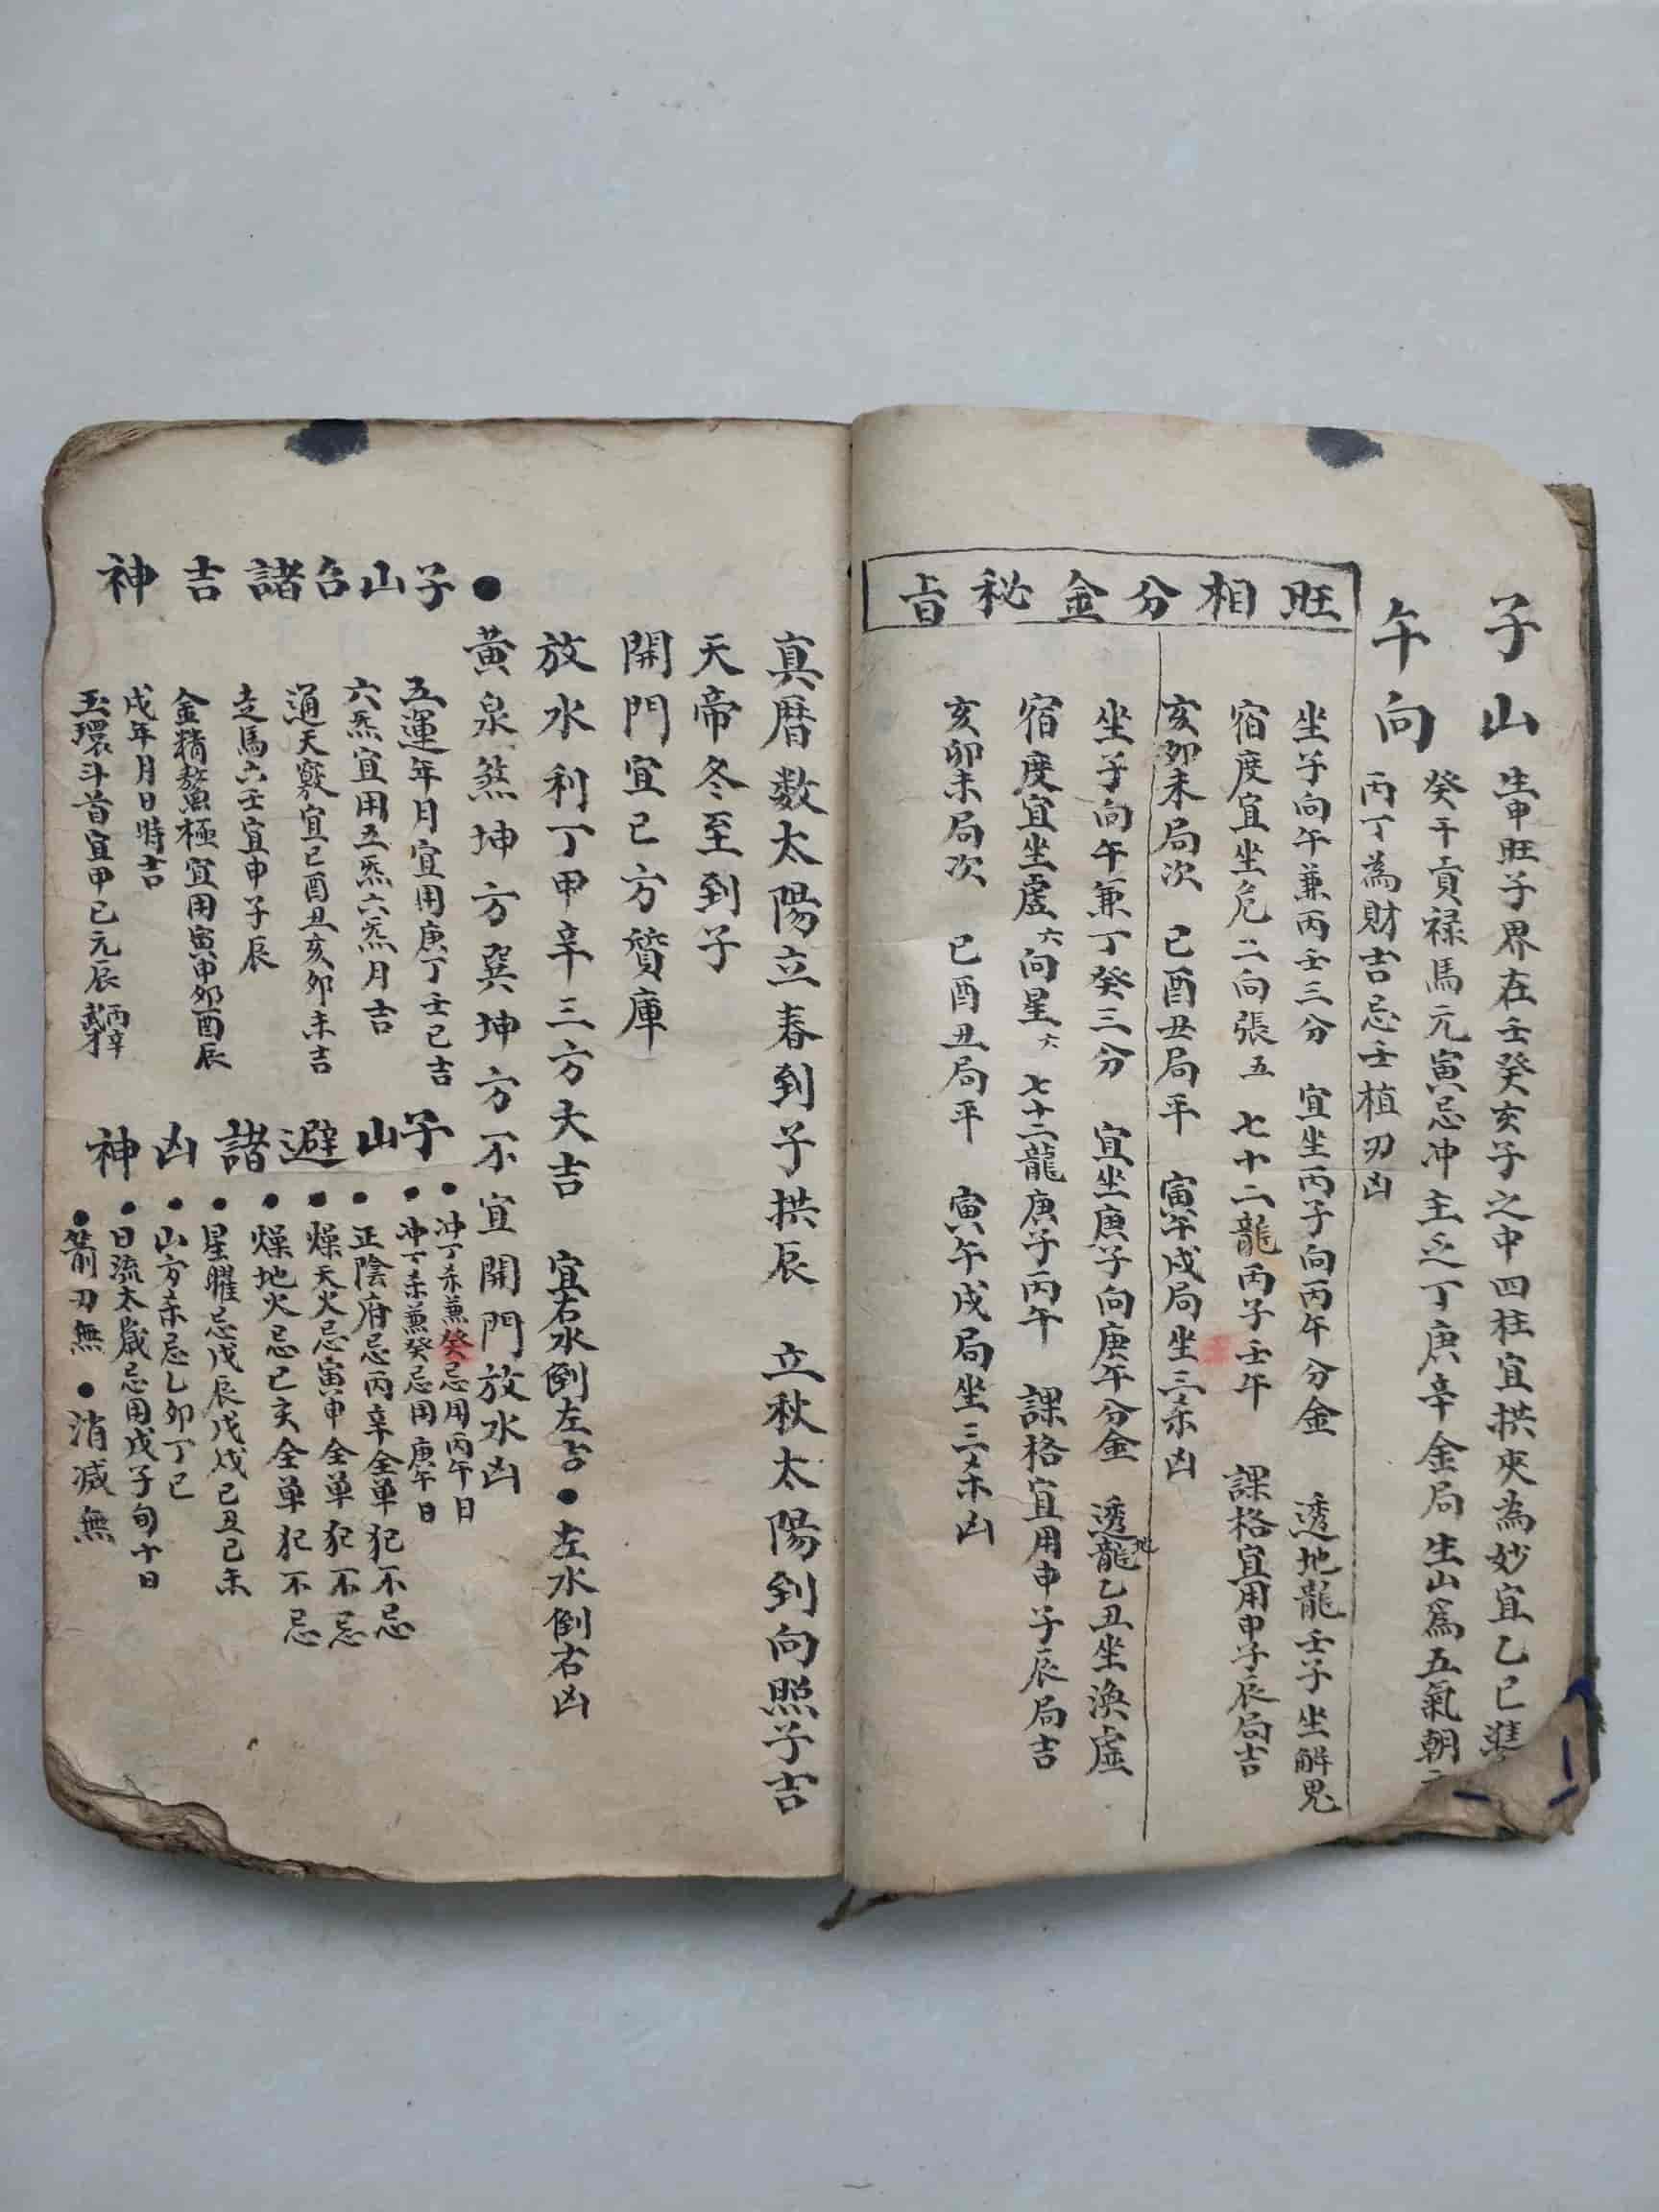 子山
午向
生申旺子界在壬癸亥子之中四柱宜拱夾為妙宜乙巳
癸干貢禄馬元寅忌冲主乏丁庚辛金局生山為五氣朝
丙丁為財吉忌壬植刃凶
旺相分金秘旨
坐子向午兼丙壬三分 宜坐丙子向丙午分金 透地龍壬子坐解鬼
宿度宜坐危二向張五 七十二龍丙子壬午 課格宜用申子辰局吉
亥卯未局次 巳酉丑局平 寅午戌局坐三杀凶
坐子向午兼丁癸三分 宜坐庚子向庚午分金 透地龍乙丑坐渙虚
宿度宜坐虚六向星六 七十二龍庚子丙午 課格宜用申子辰局吉
亥卯未局次 巳酉丑局平 寅午戌局坐三杀凶
真暦数太陽立春到子拱辰 立秋太陽到向照子吉
天帝冬至到子
開門宜巳方質庫
放水利丁甲辛三方大吉 宜右水倒左吉●左水倒右凶
黄泉煞坤方巽坤方不宜開門放水凶
●子山台諸吉神
五運年月宜用庚丁壬巳吉
六炁宜用五炁六炁月吉
通天竅宜巳酉丑亥卯未吉
走馬六壬宜申子辰
金精鰲極宜用寅申卯酉辰
戌年月日時吉
玉環斗首宜甲己元辰丙辛
子山避諸凶神
●冲丁杀兼癸忌用丙午日
●冲丁杀兼癸忌用庚午日
●正陰府忌丙辛全单犯不忌
●燥天火忌寅申全单犯不忌
●燥地火忌巳亥全单犯不忌
●星曜忌戊辰戊戌己丑己未
●山方杀忌乙卯丁巳
●日流太歲忌用戊子旬十日
●箭刃無●消滅無